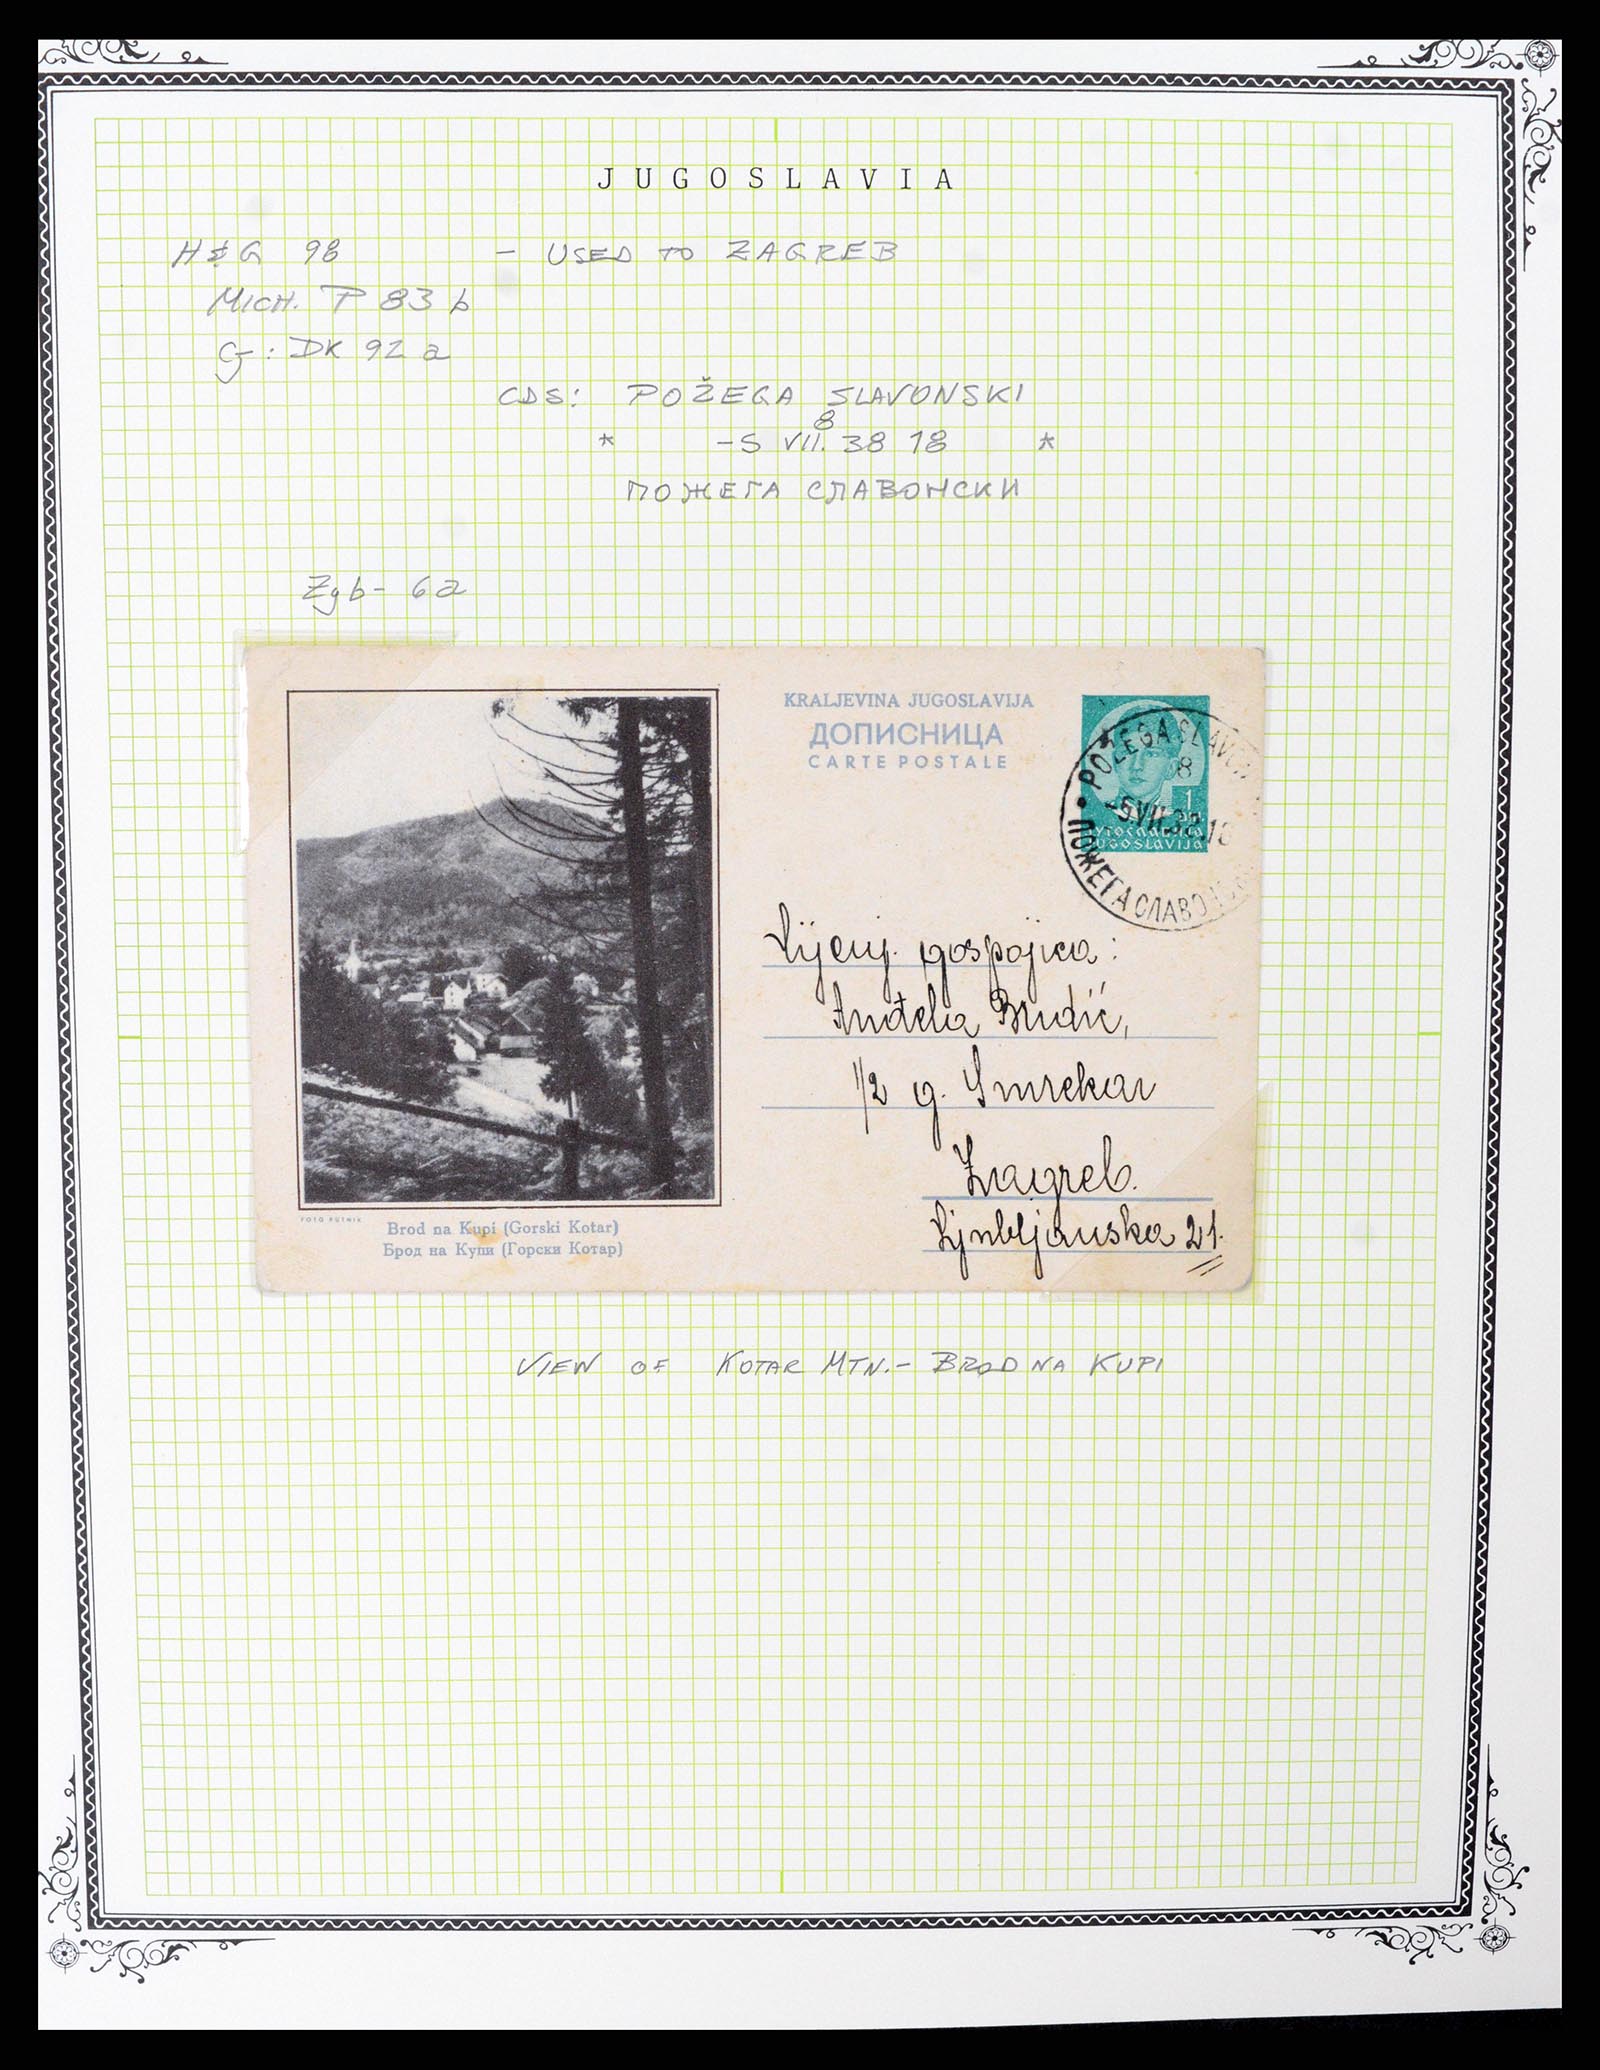 JUGOSLAVIA
H&G 98 - USED TO ZAGREB
MICH. P 83 b
G: DK 92 a
CDS: POŽEGA SLAVONSKI
8
* -5 VII. 38 18 *
ПОЖЕГА СЛАВОНСКИ
Zgb- 6a
KRALJEVINA JUGOSLAVIJA
ДОПИСНИЦА
CARTE POSTALE
POŽEGA SLAVON
8
-5.VII.38.18
ПОЖЕГА СЛАВОНСК
1
ЈУГОСЛАВИЈА
JUGOSLAVIJA
Cijenj. gospojica:
Anđela Brudić,
1/2 g. Smrekar
Zagreb.
Ljubljanska 21.
FOTO PUTNIK
Brod na Kupi (Gorski Kotar)
Брод на Купи (Горски Котар)
VIEW OF KOTAR MTN. - BROD NA KUPI